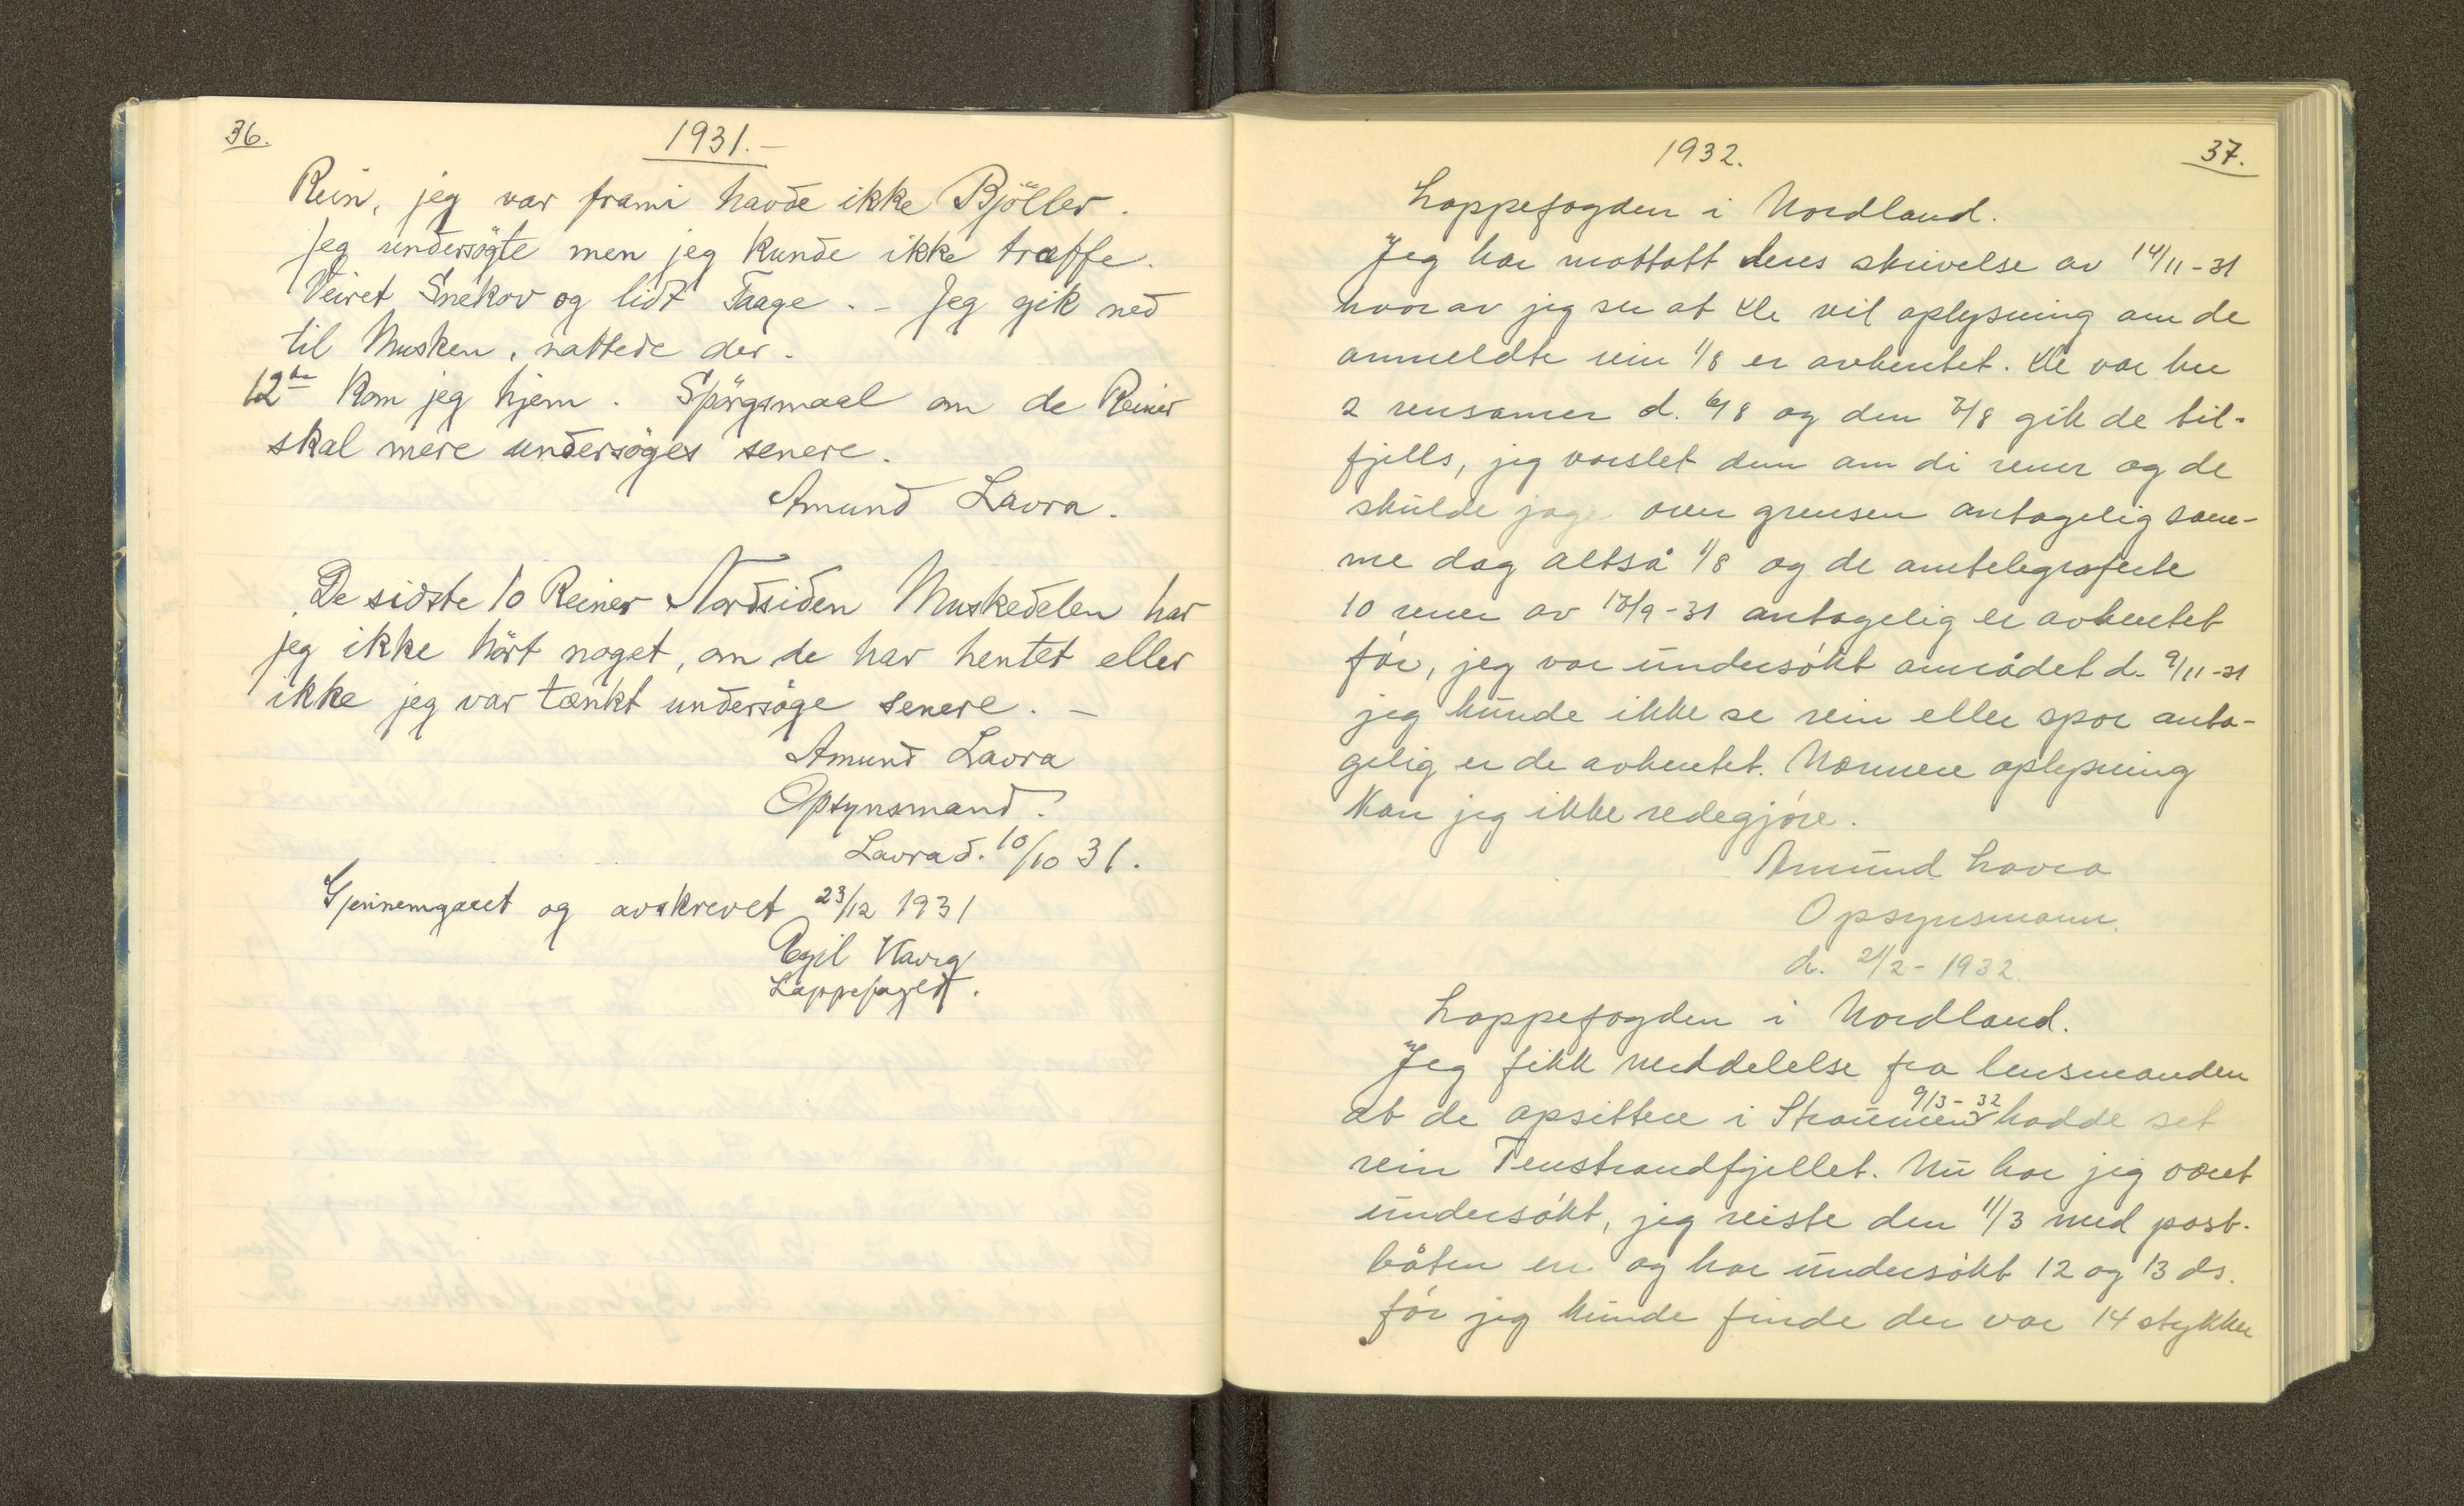 36.
1931.-
Rein, jeg var frami havde ikke Bjöller.
Jeg undersögte men jeg kunde ikke træffe.
Veiret Snekov og lidt Taage. - Jeg gik ned
til Musken, nattede der.
12te kom jeg hjem. Spörgsmaal om de Reiner
skal mere undersöges senere.
Amund Lavra.
De sidste 10 Reiner Nordsiden Muskedalen har
jeg ikke hört noget, om de har hentet eller
ikke jeg var tænkt undersöge senere. -
Amund Lavra
Opsynsmand.
Lavra d. 10/10 31.
Gjennemgaaet og avskrevet 23/12 1931
Egil
Lappefogd.
1932.
37.
Lappefogden i Nordland.
Jeg har mottatt deres skrivelse av 14/11-31
hvorav jeg ser at De vil oplysning om de
anmeldte rein 1/8 er avhentet. De var her
2 rensamer d. 6/8 og den 7/8 gik de til-
fjells, jeg varslet dem om di rener og de
skulde jage over grensen antagelig sam-
me dag altså 1/8 og de omtelegraferte
10 rener av 17/9-31 antagelig er avhentet
før, jeg var undersøkt området d. 9/11-31
jeg kunde ikke se rein eller spor anta-
gelig er de avhentet. Nærmere oplysning
kan jeg ikke redegjøre.
Amund Lavra
Opsynsmann.
d. 21/2-1932.
Lappefogden i Nordland.
Jeg fikk meddelelse fra lensmanden
at de opsittere i Straumen 9/3-32 hadde set
rein Tenstrandfjellet. Nu har jeg været
undersøkt, jeg reiste den 11/3 med post-
båten en og har undersøkt 12 og 13 ds.
før jeg kunde finde der var 14 stykker